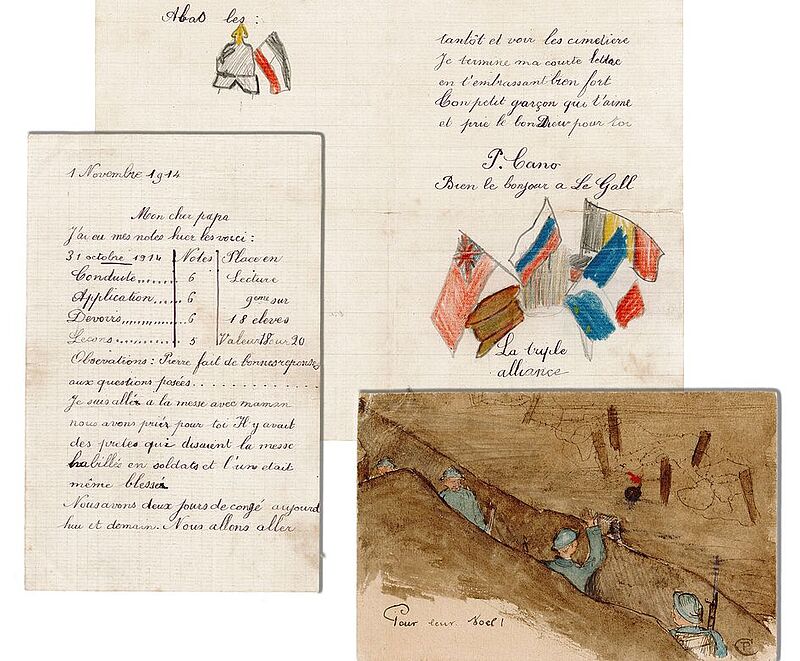 Abas les :
tantôt et voir les cimetière
Je termine ma courte lettre
en t'embrassant bien fort
Ton petit garçon qui t'aime
et prie le bon Dieu pour toi
P. Cano
Bien le bonjour a Le Gall
La triple
alliance
1 Novembre 1914
Mon cher papa
J'ai eu mes notes hier les voici :
31 octobre 1914 Notes Place en
Conduite....... 6 Lecture
Application..... 6 9eme sur
Devoirs............ 6 18 eleves
Lecons.......... 5 Valeur 18 sur 20
Obsevations : Pierre fait de bonnes reponses
aux questions posées. . . . . . . . . . . .
Je suis allée a la messe avec maman
nous avons priér pour toi Il y avait
des pretes qui disaient la messe
habillés en soldats et l'un etait
même blessér
Nous avons deux jours de congé aujourd
hui et demain. Nous allons aller
Pour leur Noel !